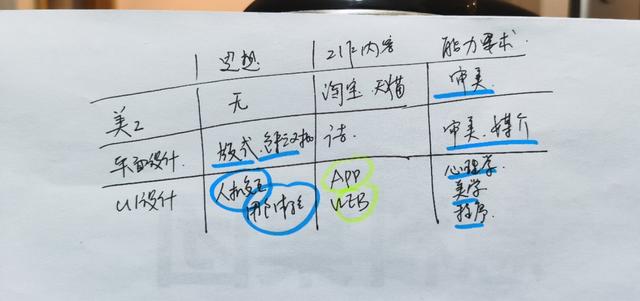 思想 工作内容 能力要求
美工 无 淘宝.天猫 审美
平面设计. 版式. 审美.媒介
UI设计 人机交互 APP 心理学.
用户体验 WEB 美学
程序.